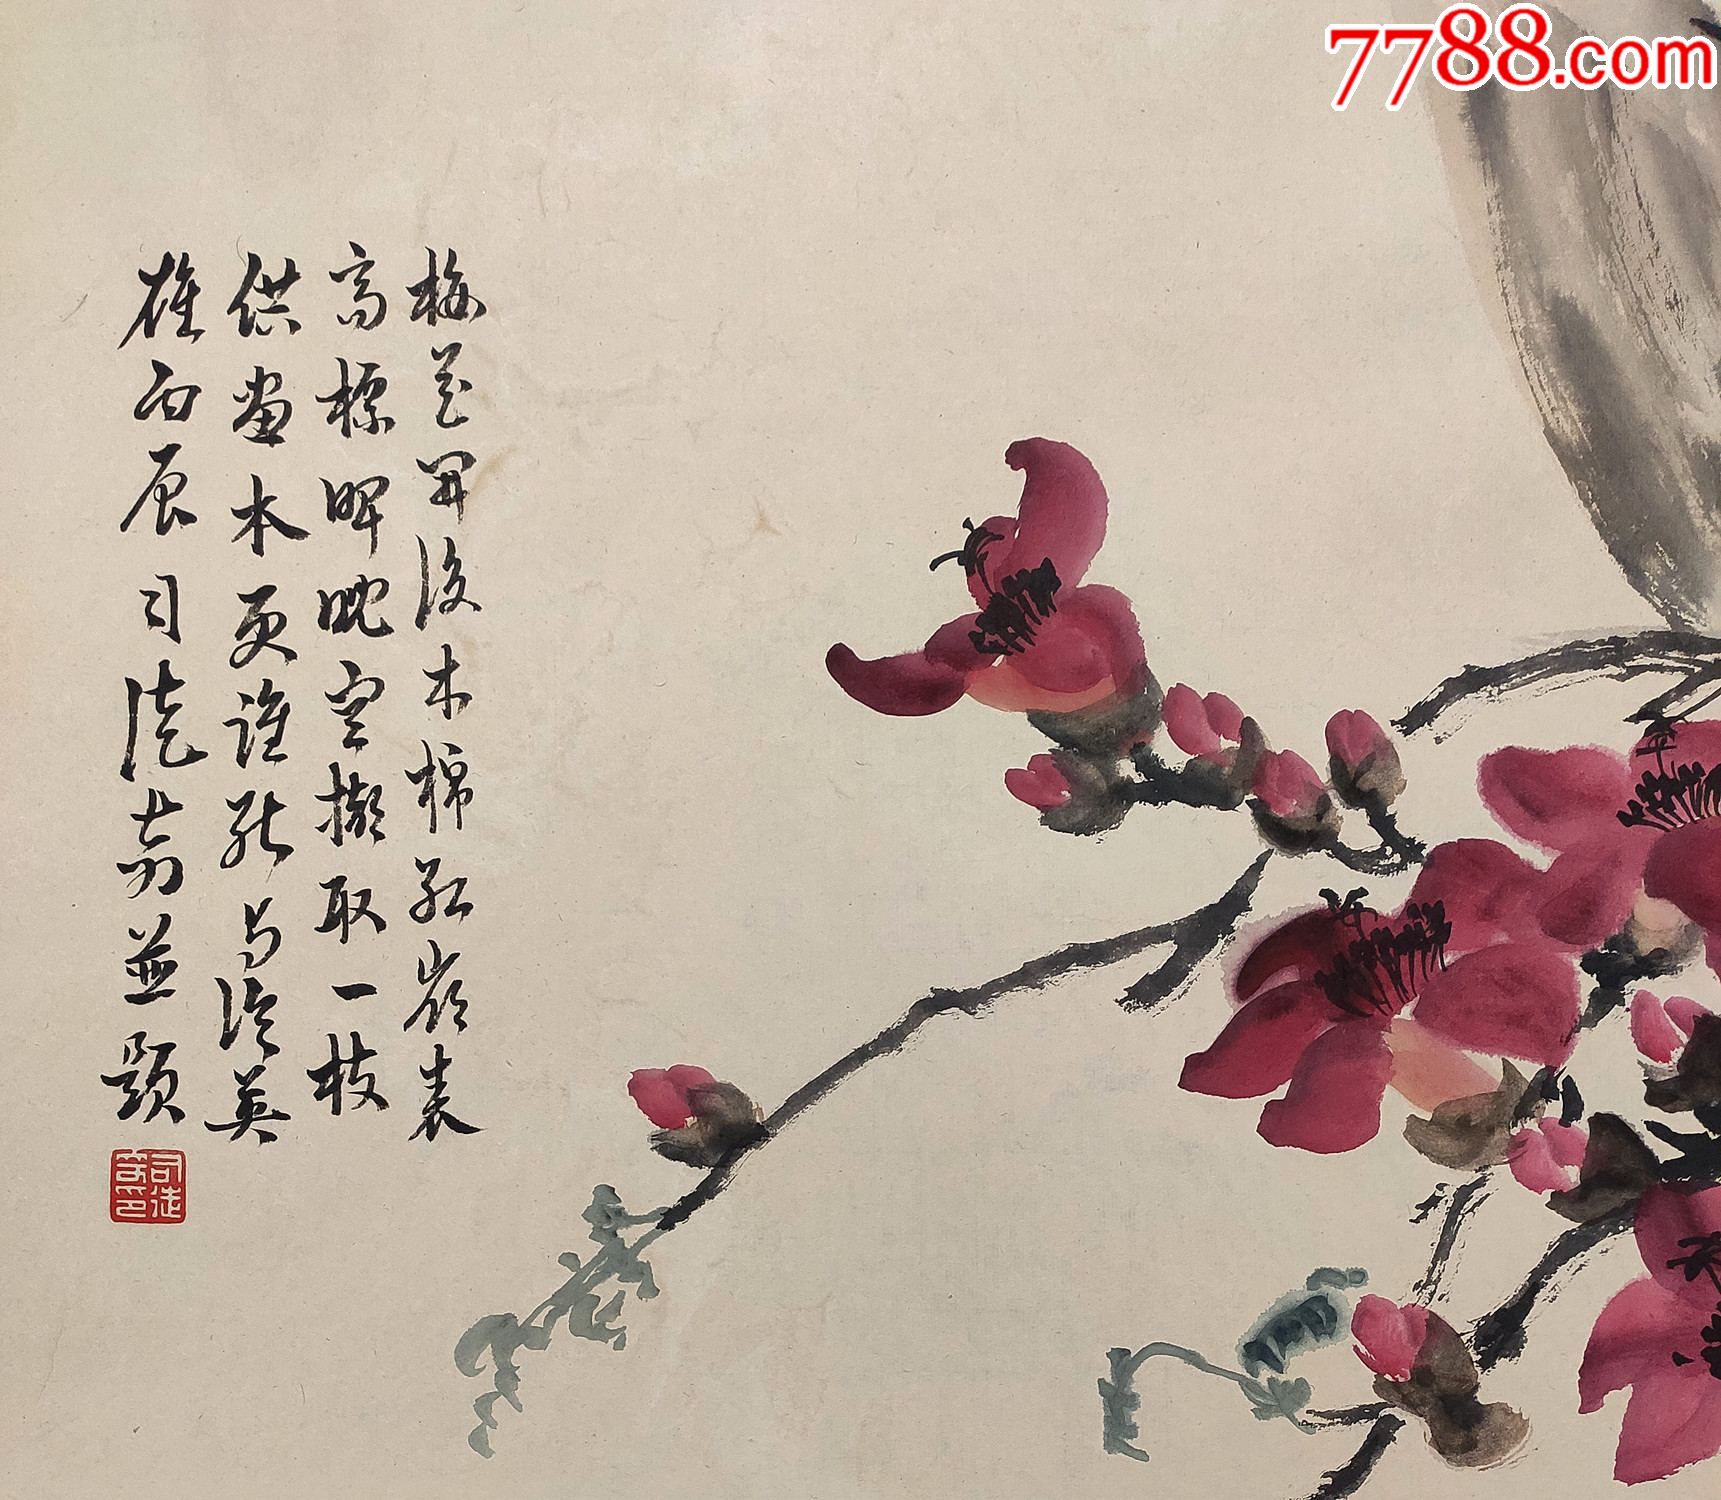 梅花開後木棉紅嶺表
高標睥睨空擬取一枝
供畫本更誰能與論英
雄丙辰司徒奇並題
司徒奇印
7788.com